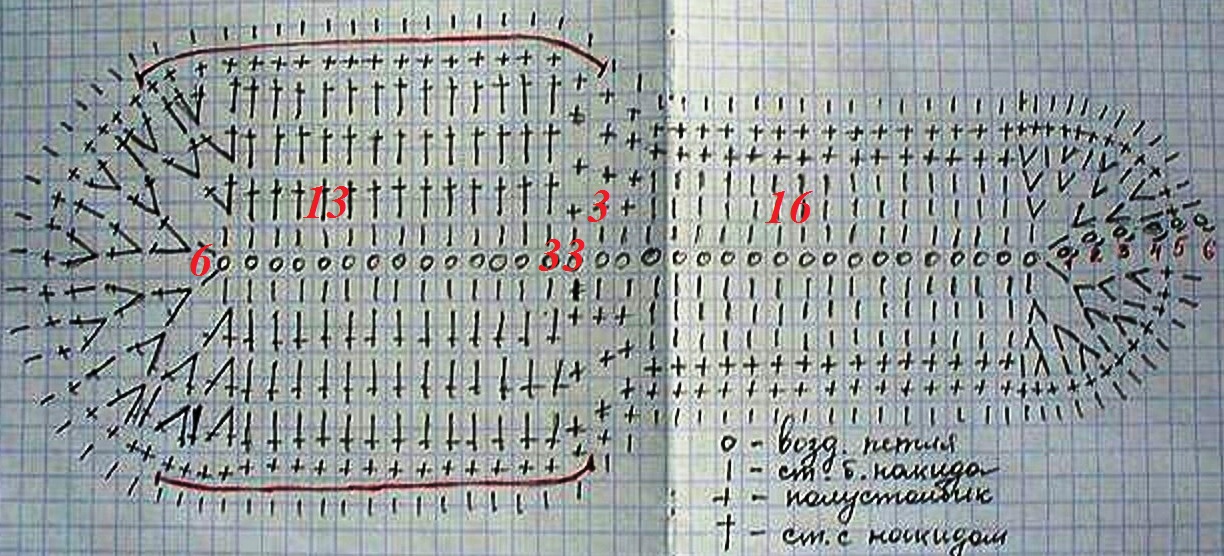 13
3
16
33
6
1 2 3 4 5 6
o - возд. петля
| - ст. б. накида
+ - полустолбик
† - ст. с накидом